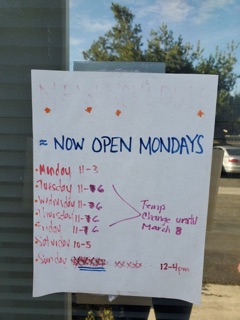 = NOW OPEN MONDAYS
• Monday 11-3
• Tuesday 11-6
• Wednesday 11-6
• Thursday 11-6
• Friday 11-6
• Saturday 10-5
• Sunday 12-4pm
Temp
Change until
March 8